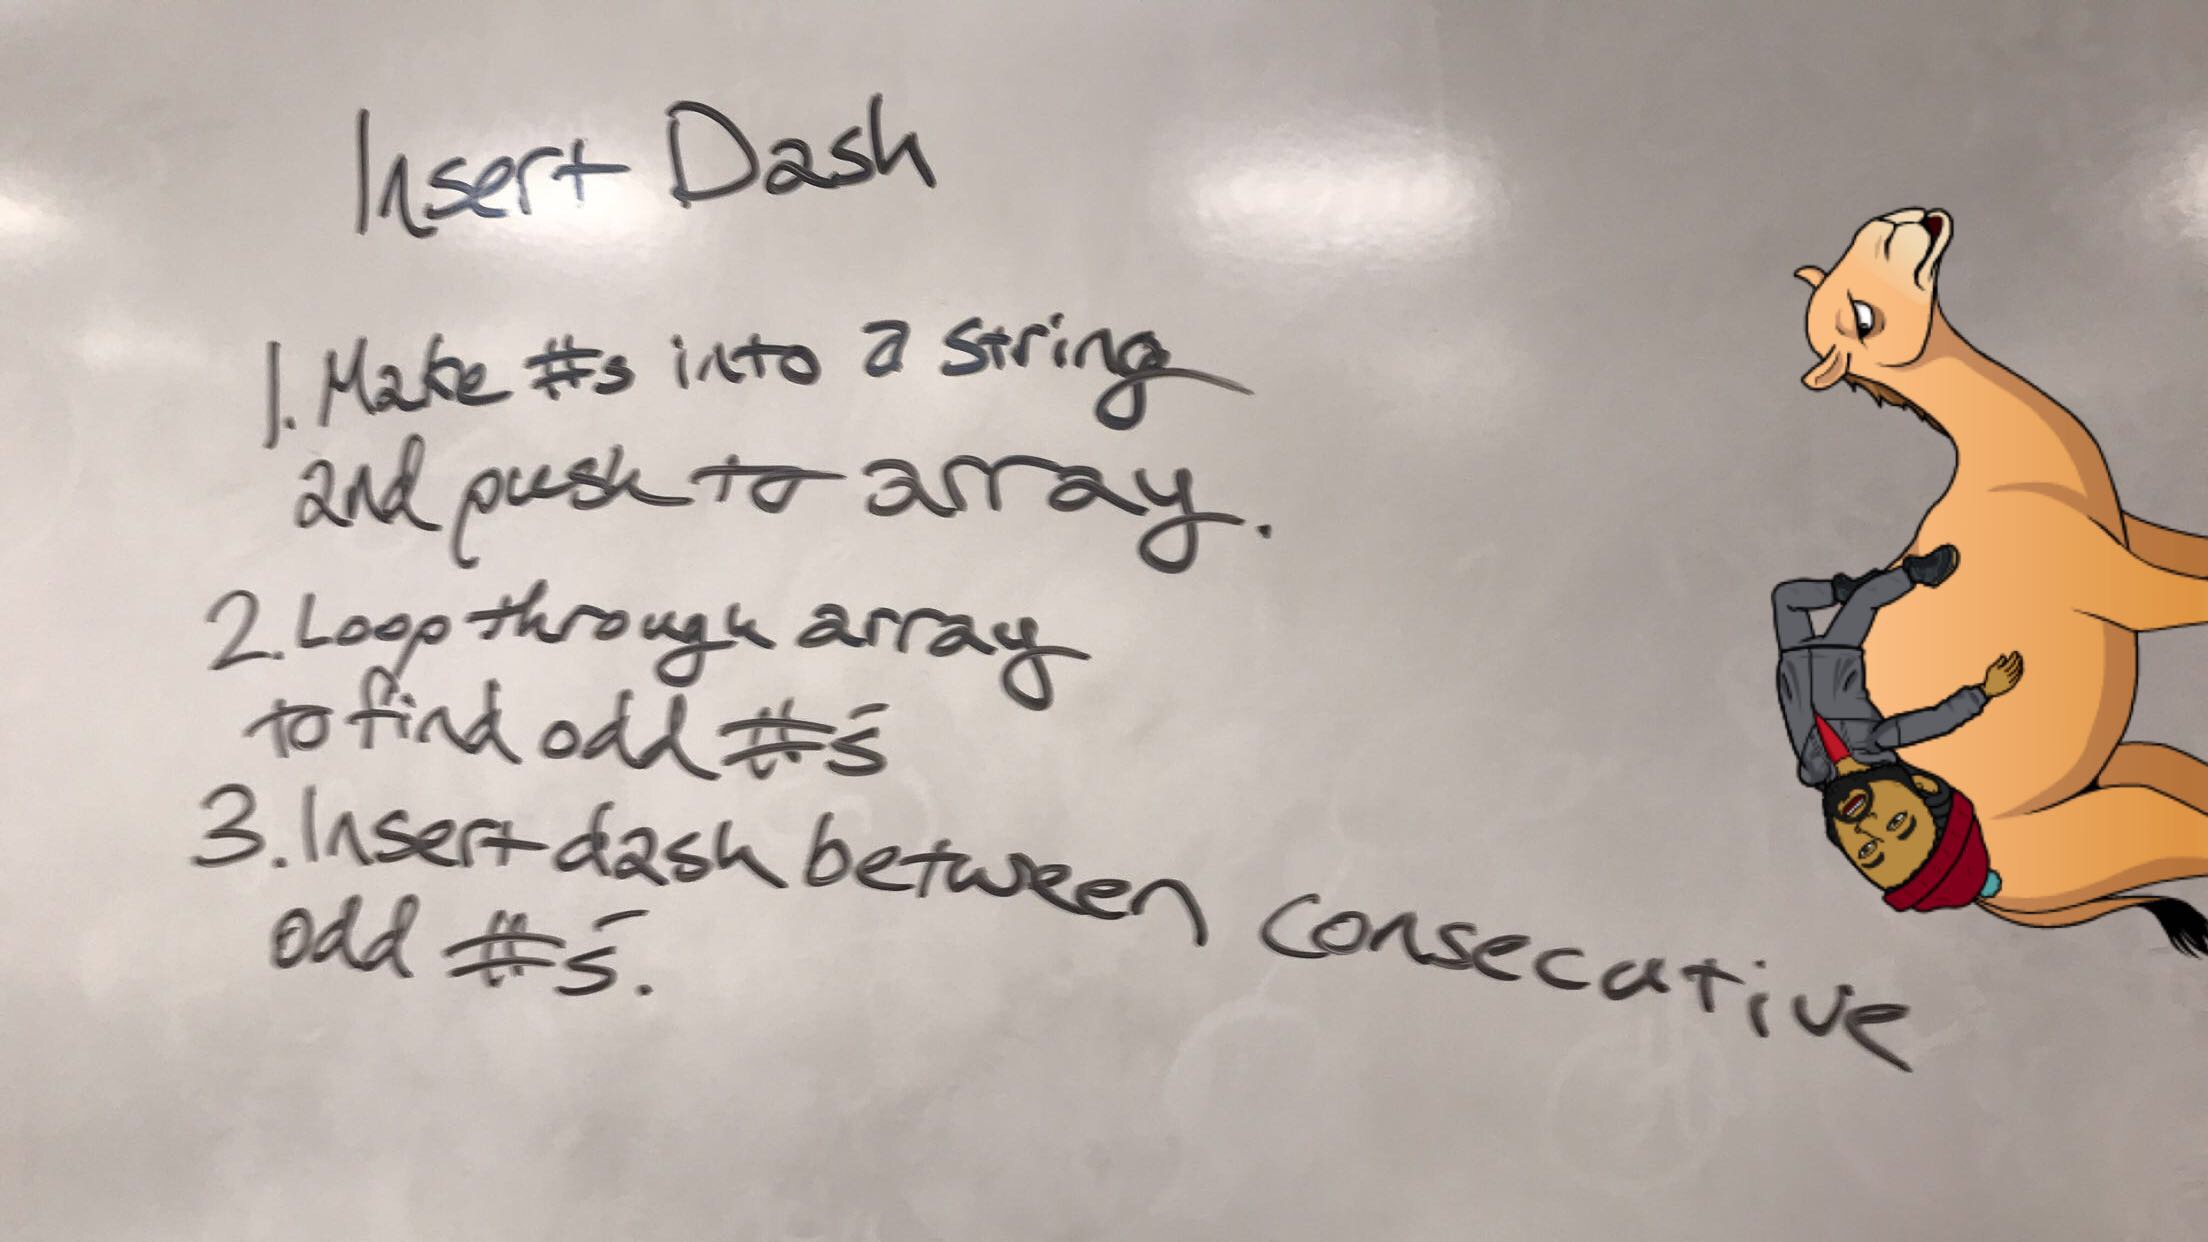 Insert Dash
1. Make #s into a string
and push to array.
2. Loop through array
to find odd #s
3. Insert dash between consecutive
odd #s.